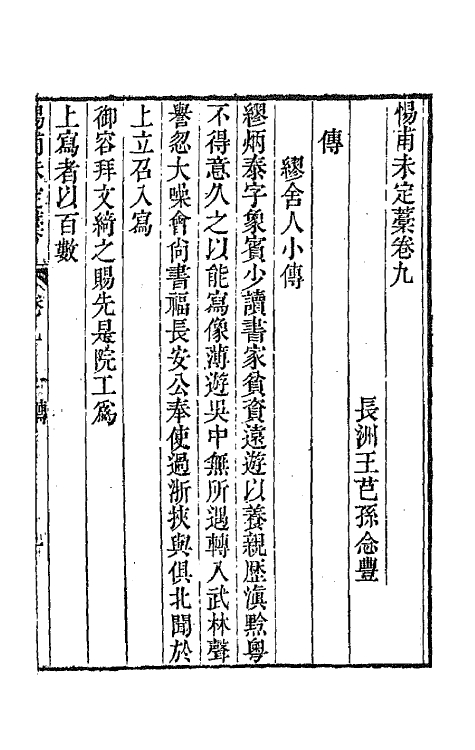 惕甫未定藁卷九
長洲王芑孫念豐
傳
繆舍人小傳
繆炳泰字象賓少讀書家貧資遠遊以養親歷滇黔粵
不得意久之以能寫像薄遊吳中無所遇轉入武林聲
譽忽大噪會尙書福長安公奉使過浙挾與俱北聞於
上立召入寫
御容拜文綺之賜先是院工爲
上寫者以百數
惕甫未定藁 卷九 傳